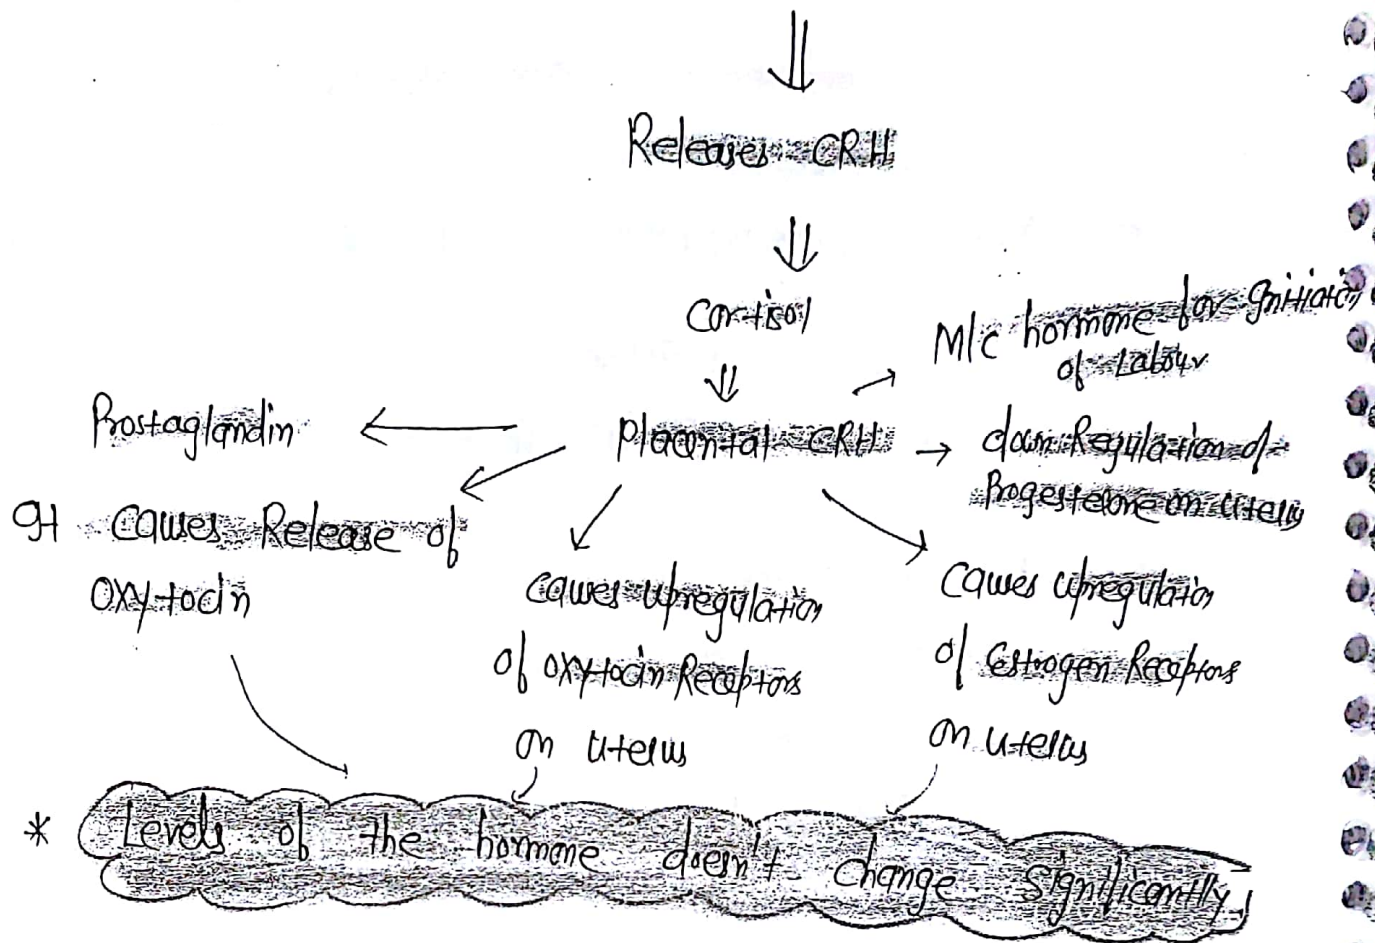 Releases CRH
Cortisol
M/c hormone for Initiation
of Labour
Prostaglandin
Placental CRH
down Regulation of
Progesterone on uterus
It causes Release of
oxytocin
causes upregulation
of oxytocin Receptors
on uterus
causes upregulation
of Estrogen Receptors
on uterus
* Levels of the hormone doesn't change significantly!